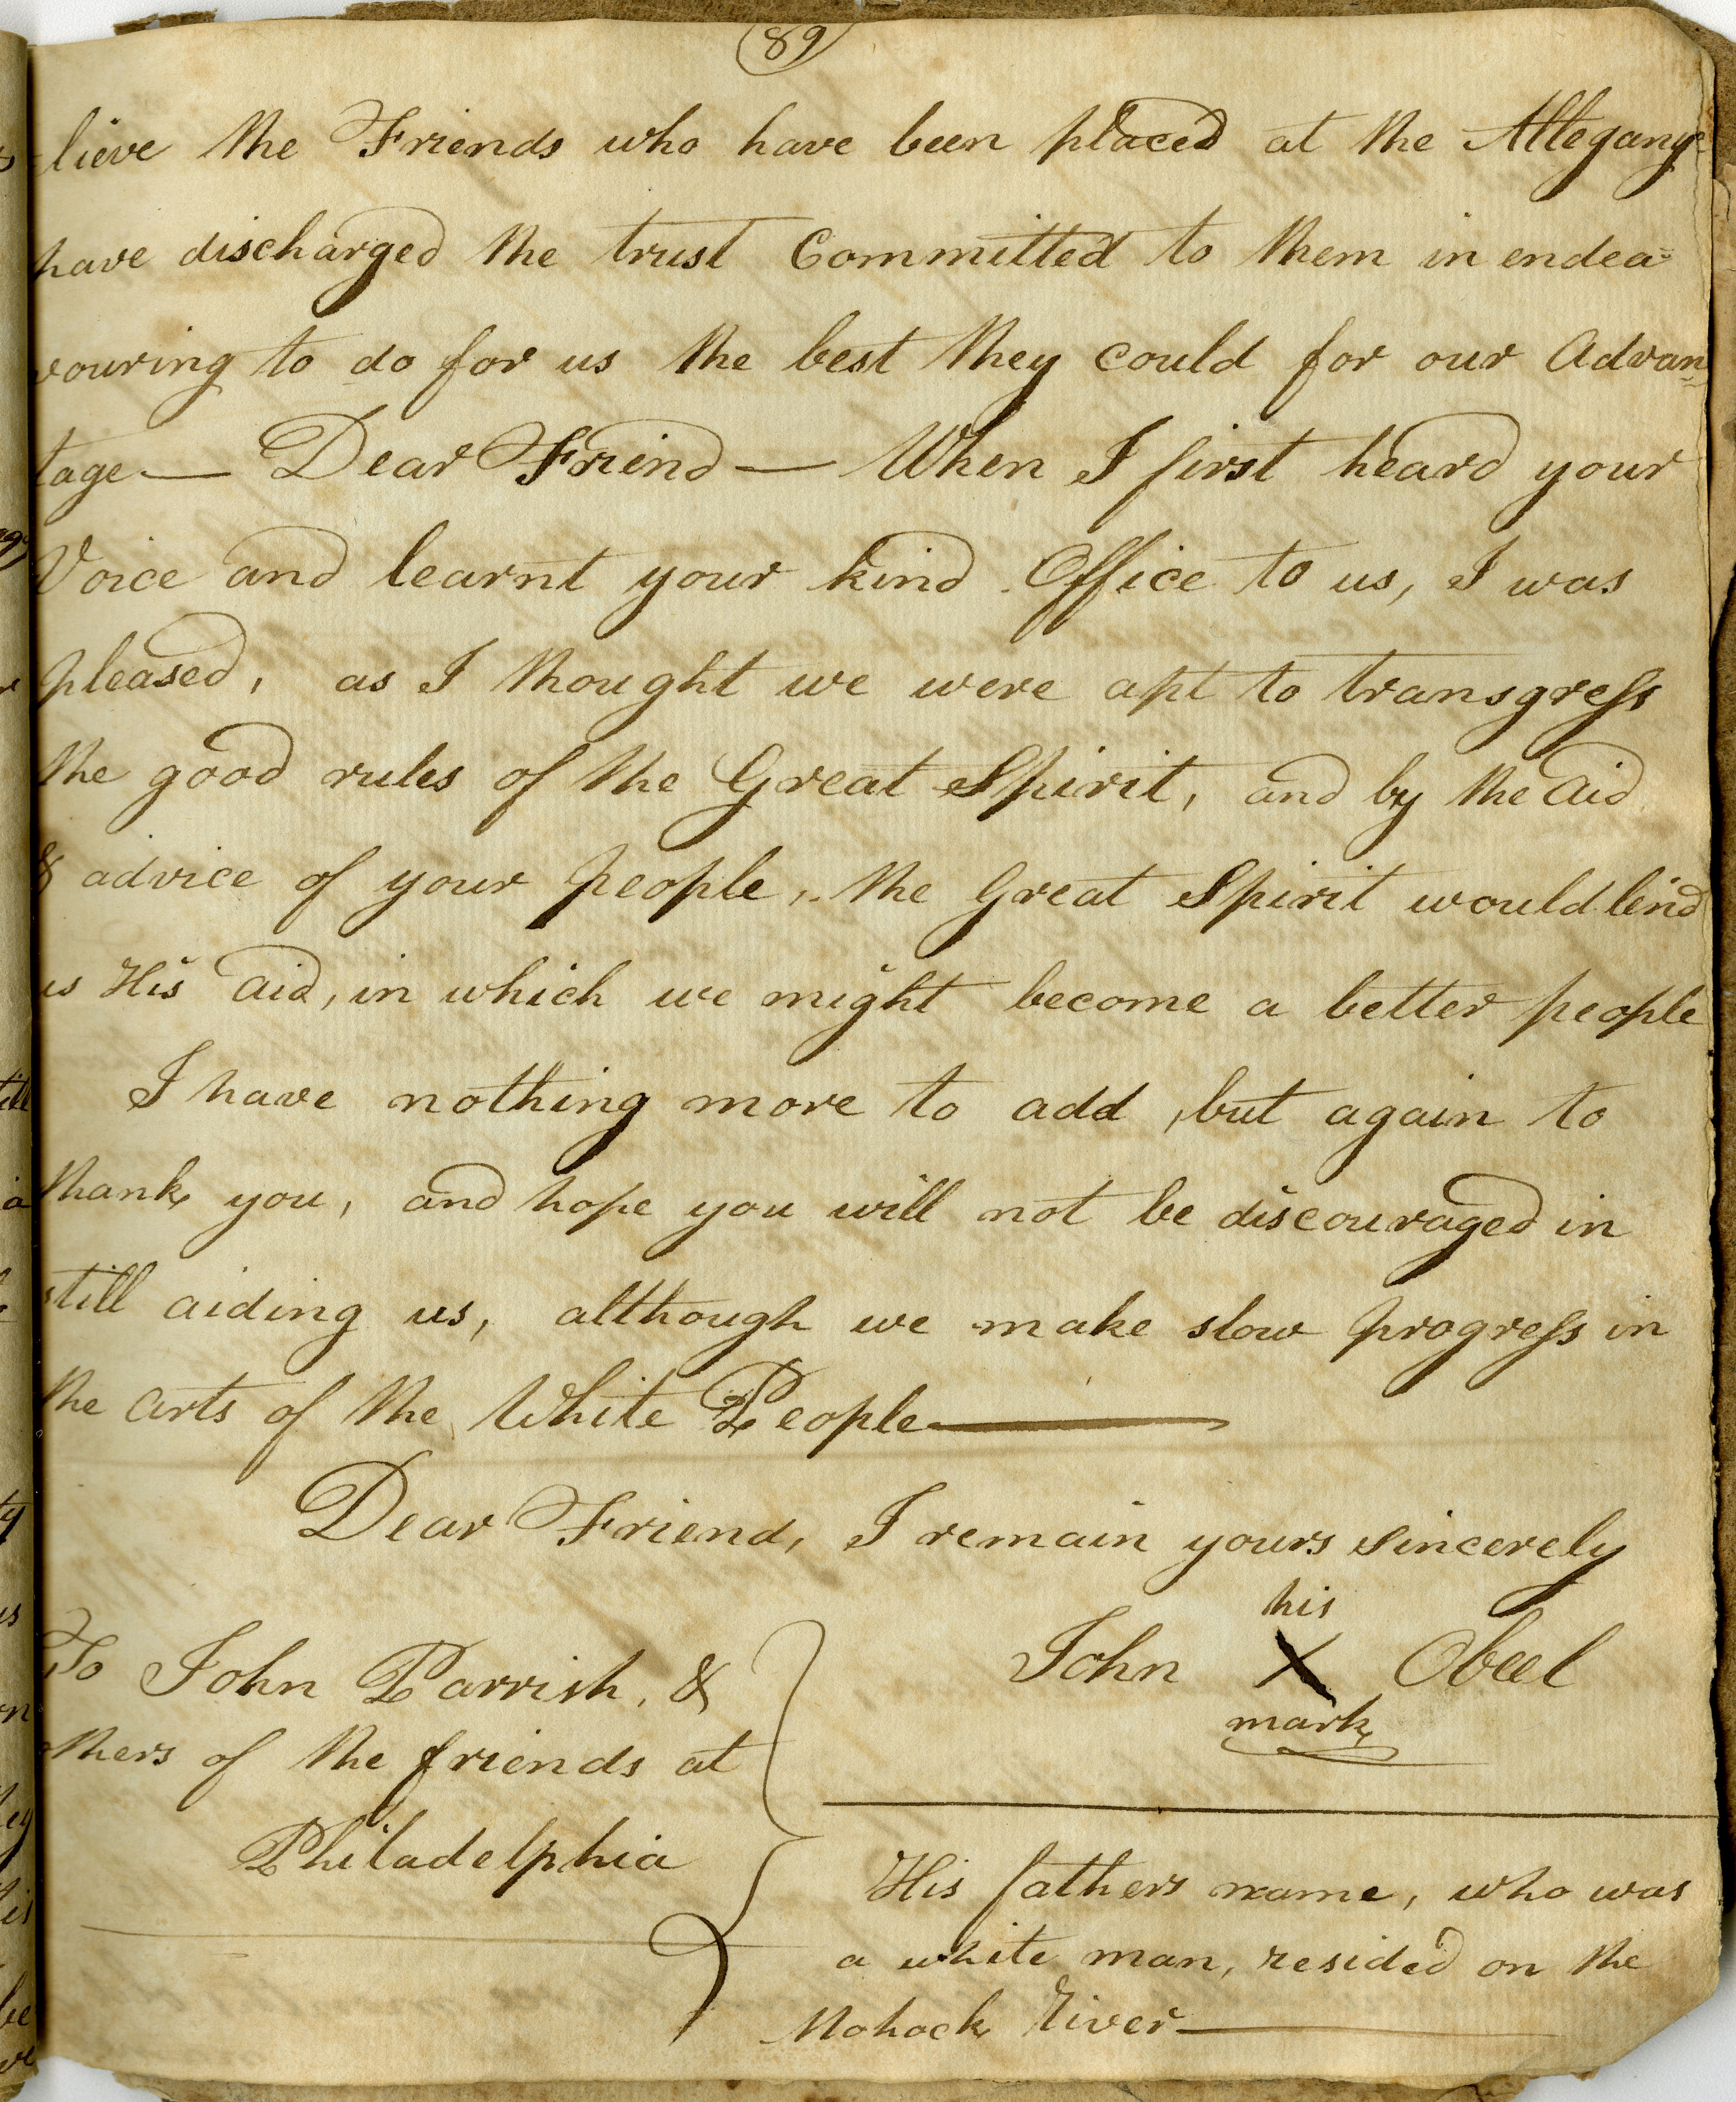 89
lieve the Friends who have been placed at the Allegany
have discharged the trust Committed to them in endea=
vouring to do for us the best they could for our Advan=
tage— Dear Friend — When I first heard your
Voice and learnt your kind Office to us, I was
pleased, as I thought we were apt to transgress
the good rules of the Great Spirit, and by the aid
& advice of your people, the Great Spirit would lend
us His aid, in which we might become a better people
I have nothing more to add, but again to
thank you, and hope you will not be discouraged in
still aiding us, although we make slow progress in
the arts of the White People—
Dear Friend, I remain yours sincerely
his
John X Obeel
mark
To John Parrish, &
others of the friends at
Philadelphia
His fathers name, who was
a white man, resided on the
Mohock River—